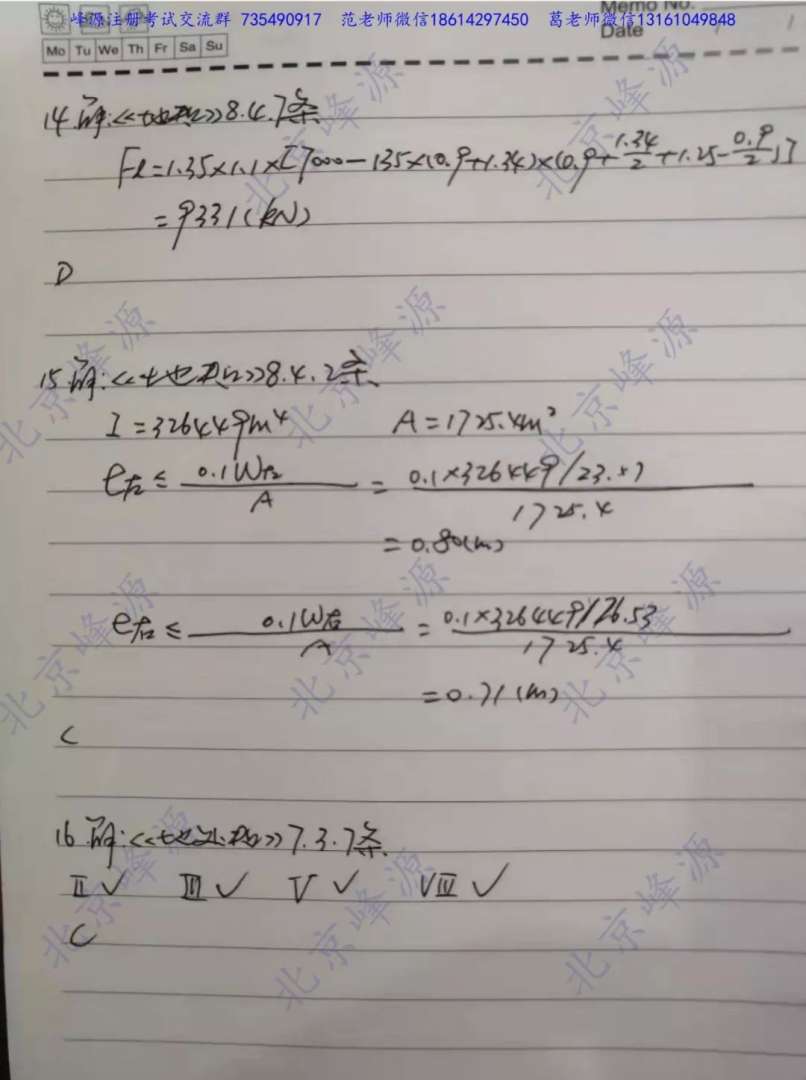 峰源注册考试交流群 735490917 范老师微信18614297450 葛老师微信13161049848
Memo No.
Date
Mo Tu We Th Fr Sa Su
14.解:《地规》8.4.7条
Fl=1.35×1.1×[7000-135×(0.9+1.34)×(0.9+1.34/2+1.25-0.9/2)]
=9331(kN)
D
15.解:《地规》8.4.2条
I=326449m⁴ A=1725.4m²
e左≤0.1W左/A=0.1×326449/23.57/1725.4
=0.80(m)
e右≤0.1W右/A=0.1×326449/26.53/1725.4
=0.71(m)
C
16.解:《地处规》7.3.7条
Ⅱ✓ Ⅲ✓ Ⅴ✓ ⅤⅢ✓
C
北京峰源
北京峰源
北京峰源
北京峰源
北京峰源
北京峰源
北京峰源
北京峰源
北京峰源
北京峰源
北京峰源